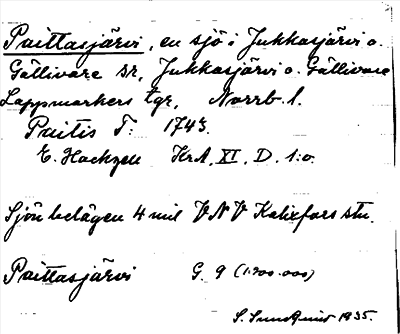 Paittasjärvi, en sjö i Jukkasjärvi o.
Gällivare sr, Jukkasjärvi o. Gällivare
Lappmarkers tgr, Norrb. l.
Paitis T: 1743.
E. Hackzell KrA. XI. D. 1:o.
Sjön belägen 4 mil VNV Kalixfors stn.
Paittasjärvi G. 9 (1:200.000)
S. Sundqvist 1935.